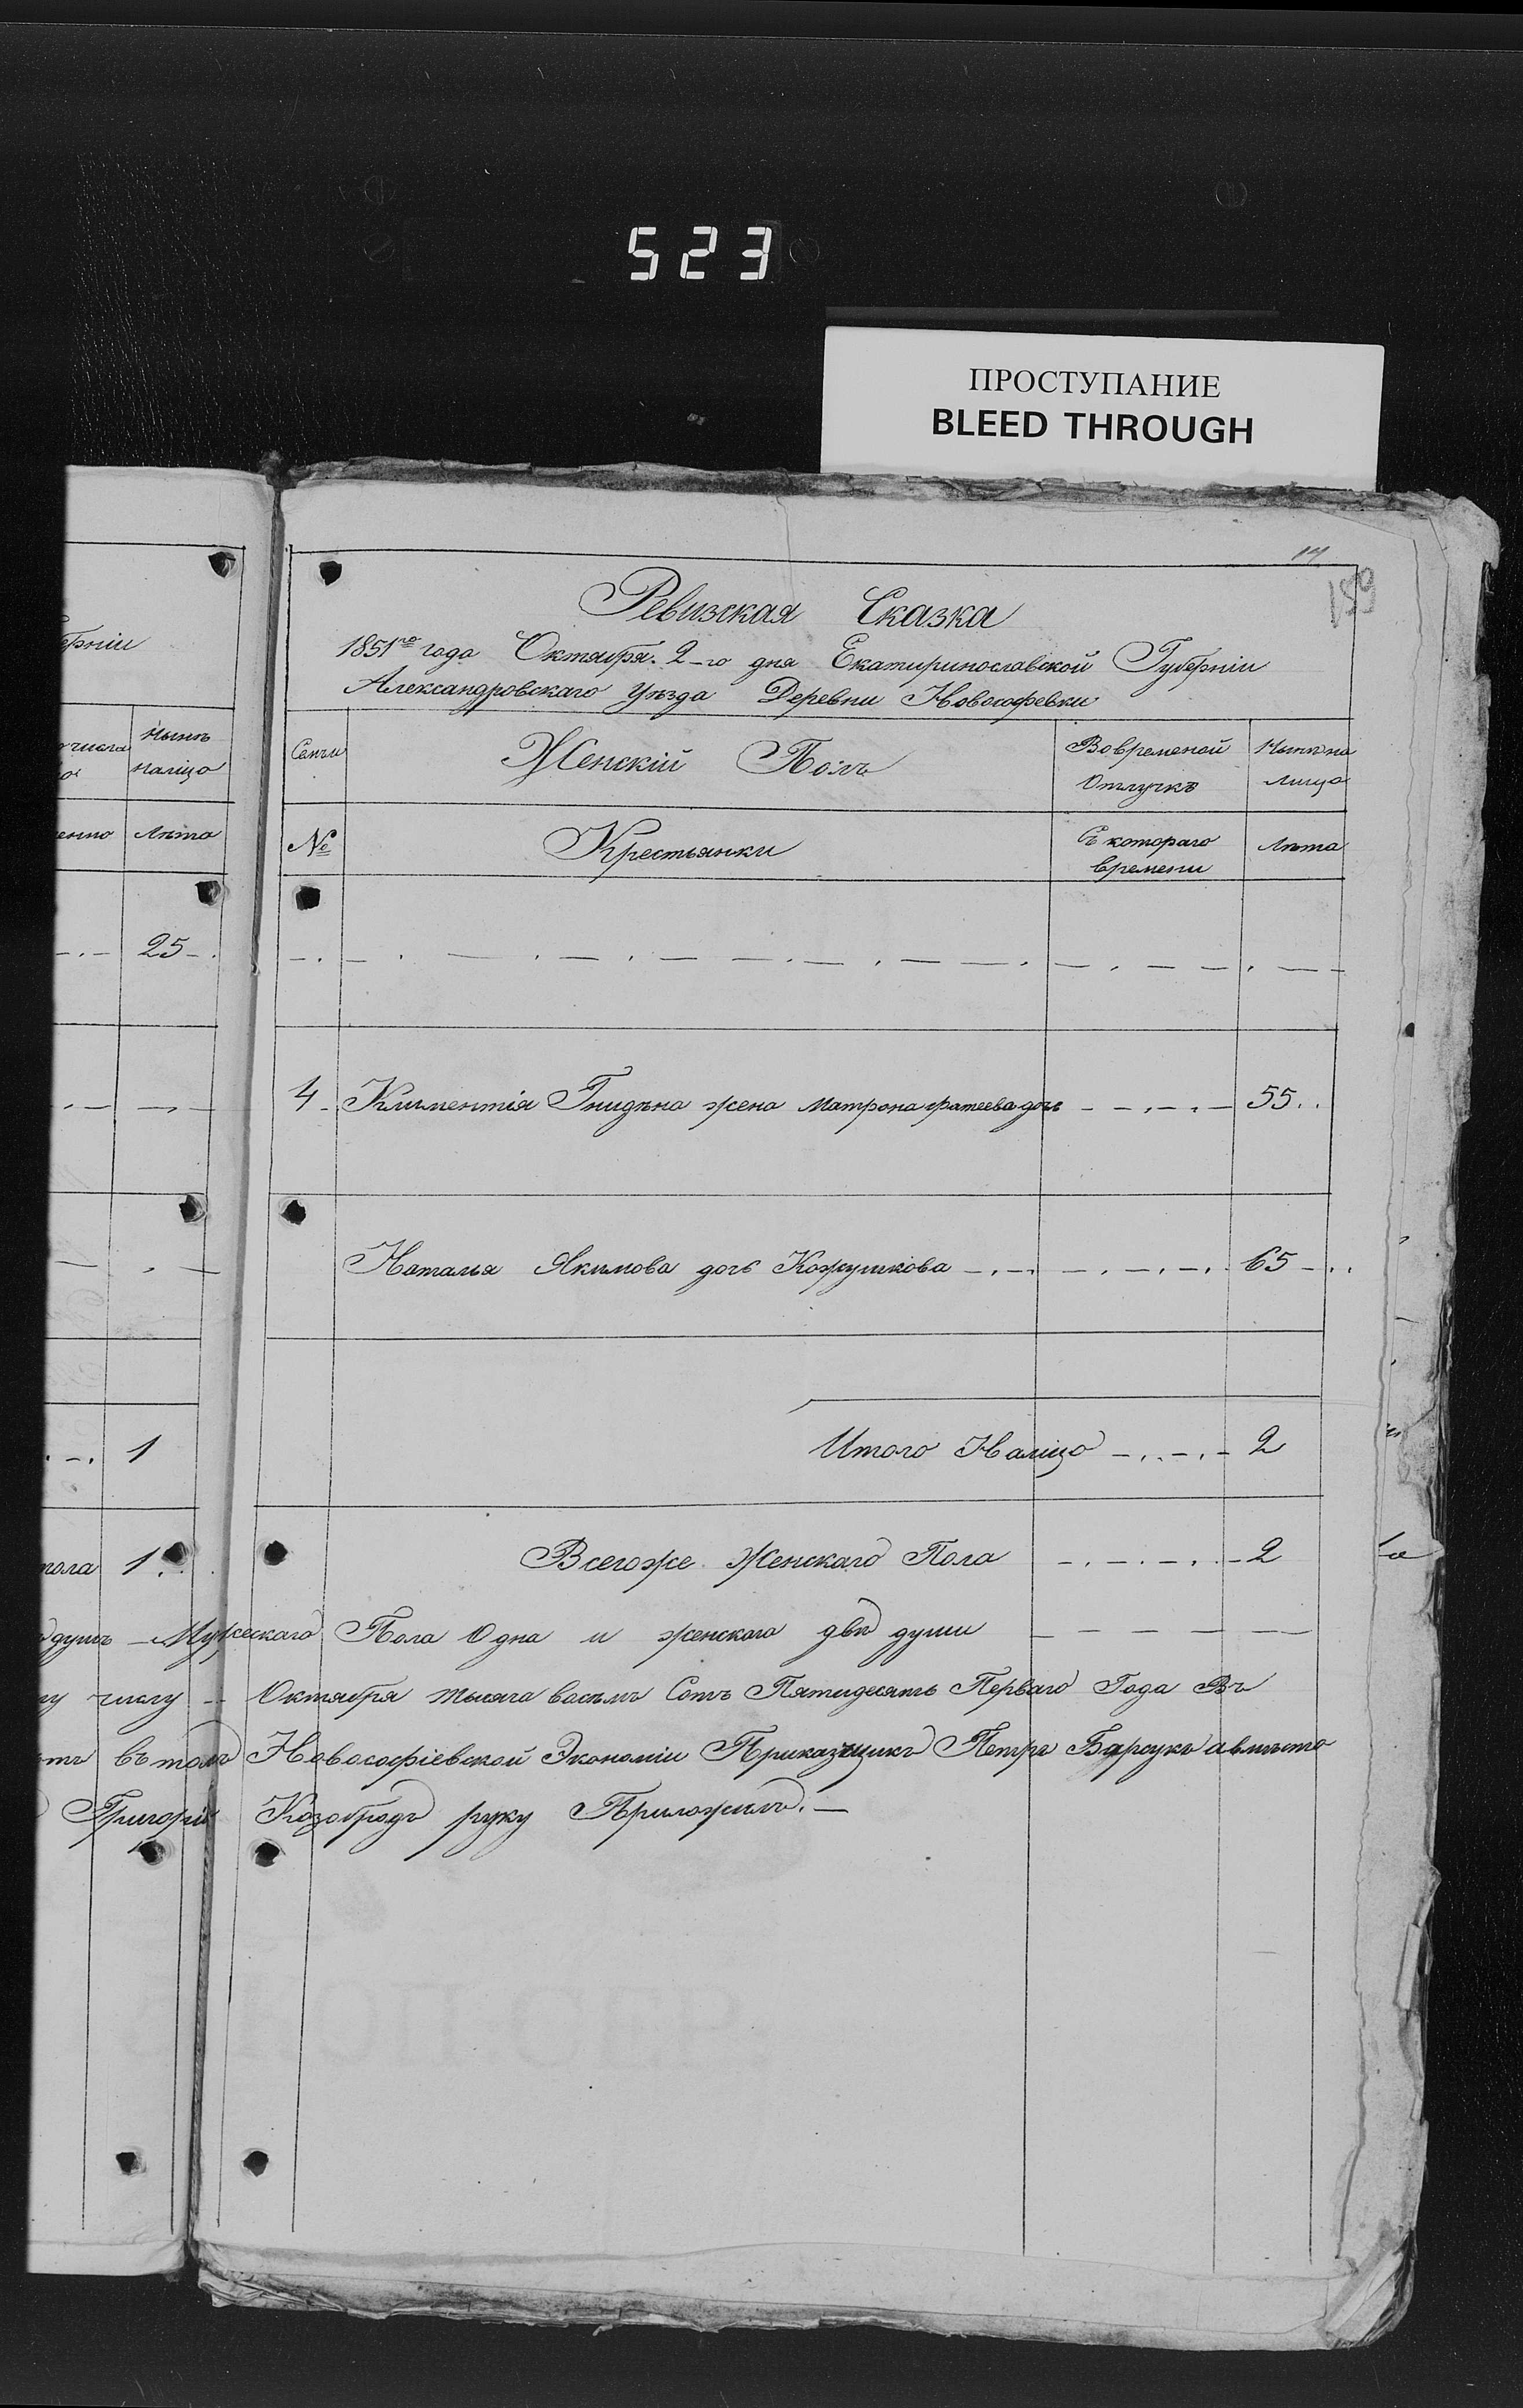 523
ПРОСТУПАНИЕ
BLEED THROUGH
14
189
Ревизская Сказка
1851го года Октября 2-го дня Екатиринославской Губерніи
Александровскаго Уѣзда Деревни Новософевки
Семьи Женскій Полъ Вовременой Отлучкѣ Нынѣ на Лицо
№ Крестьянки Съ котораго времени Лѣта
4 Климентія Гнидѣна жена Матрона фатеева дочь 55
Наталья Якимова дочь Кожушкова 65
Итого Налицо 2
Всегоже Женскаго Пола 2
душъ Мужескаго Пола Одна и женскаго двѣ души
числу Октября тысяча восемъ Сотъ Пятидесятъ Перваго Года Въ
въ томъ Новософіевской Экономіи Приказчикъ Петръ Барсукъ авместо
Григорій Козобродъ руку Приложилъ.
ерніи
числа
Нынѣ
налицо
Лѣта
25
1
пола 1